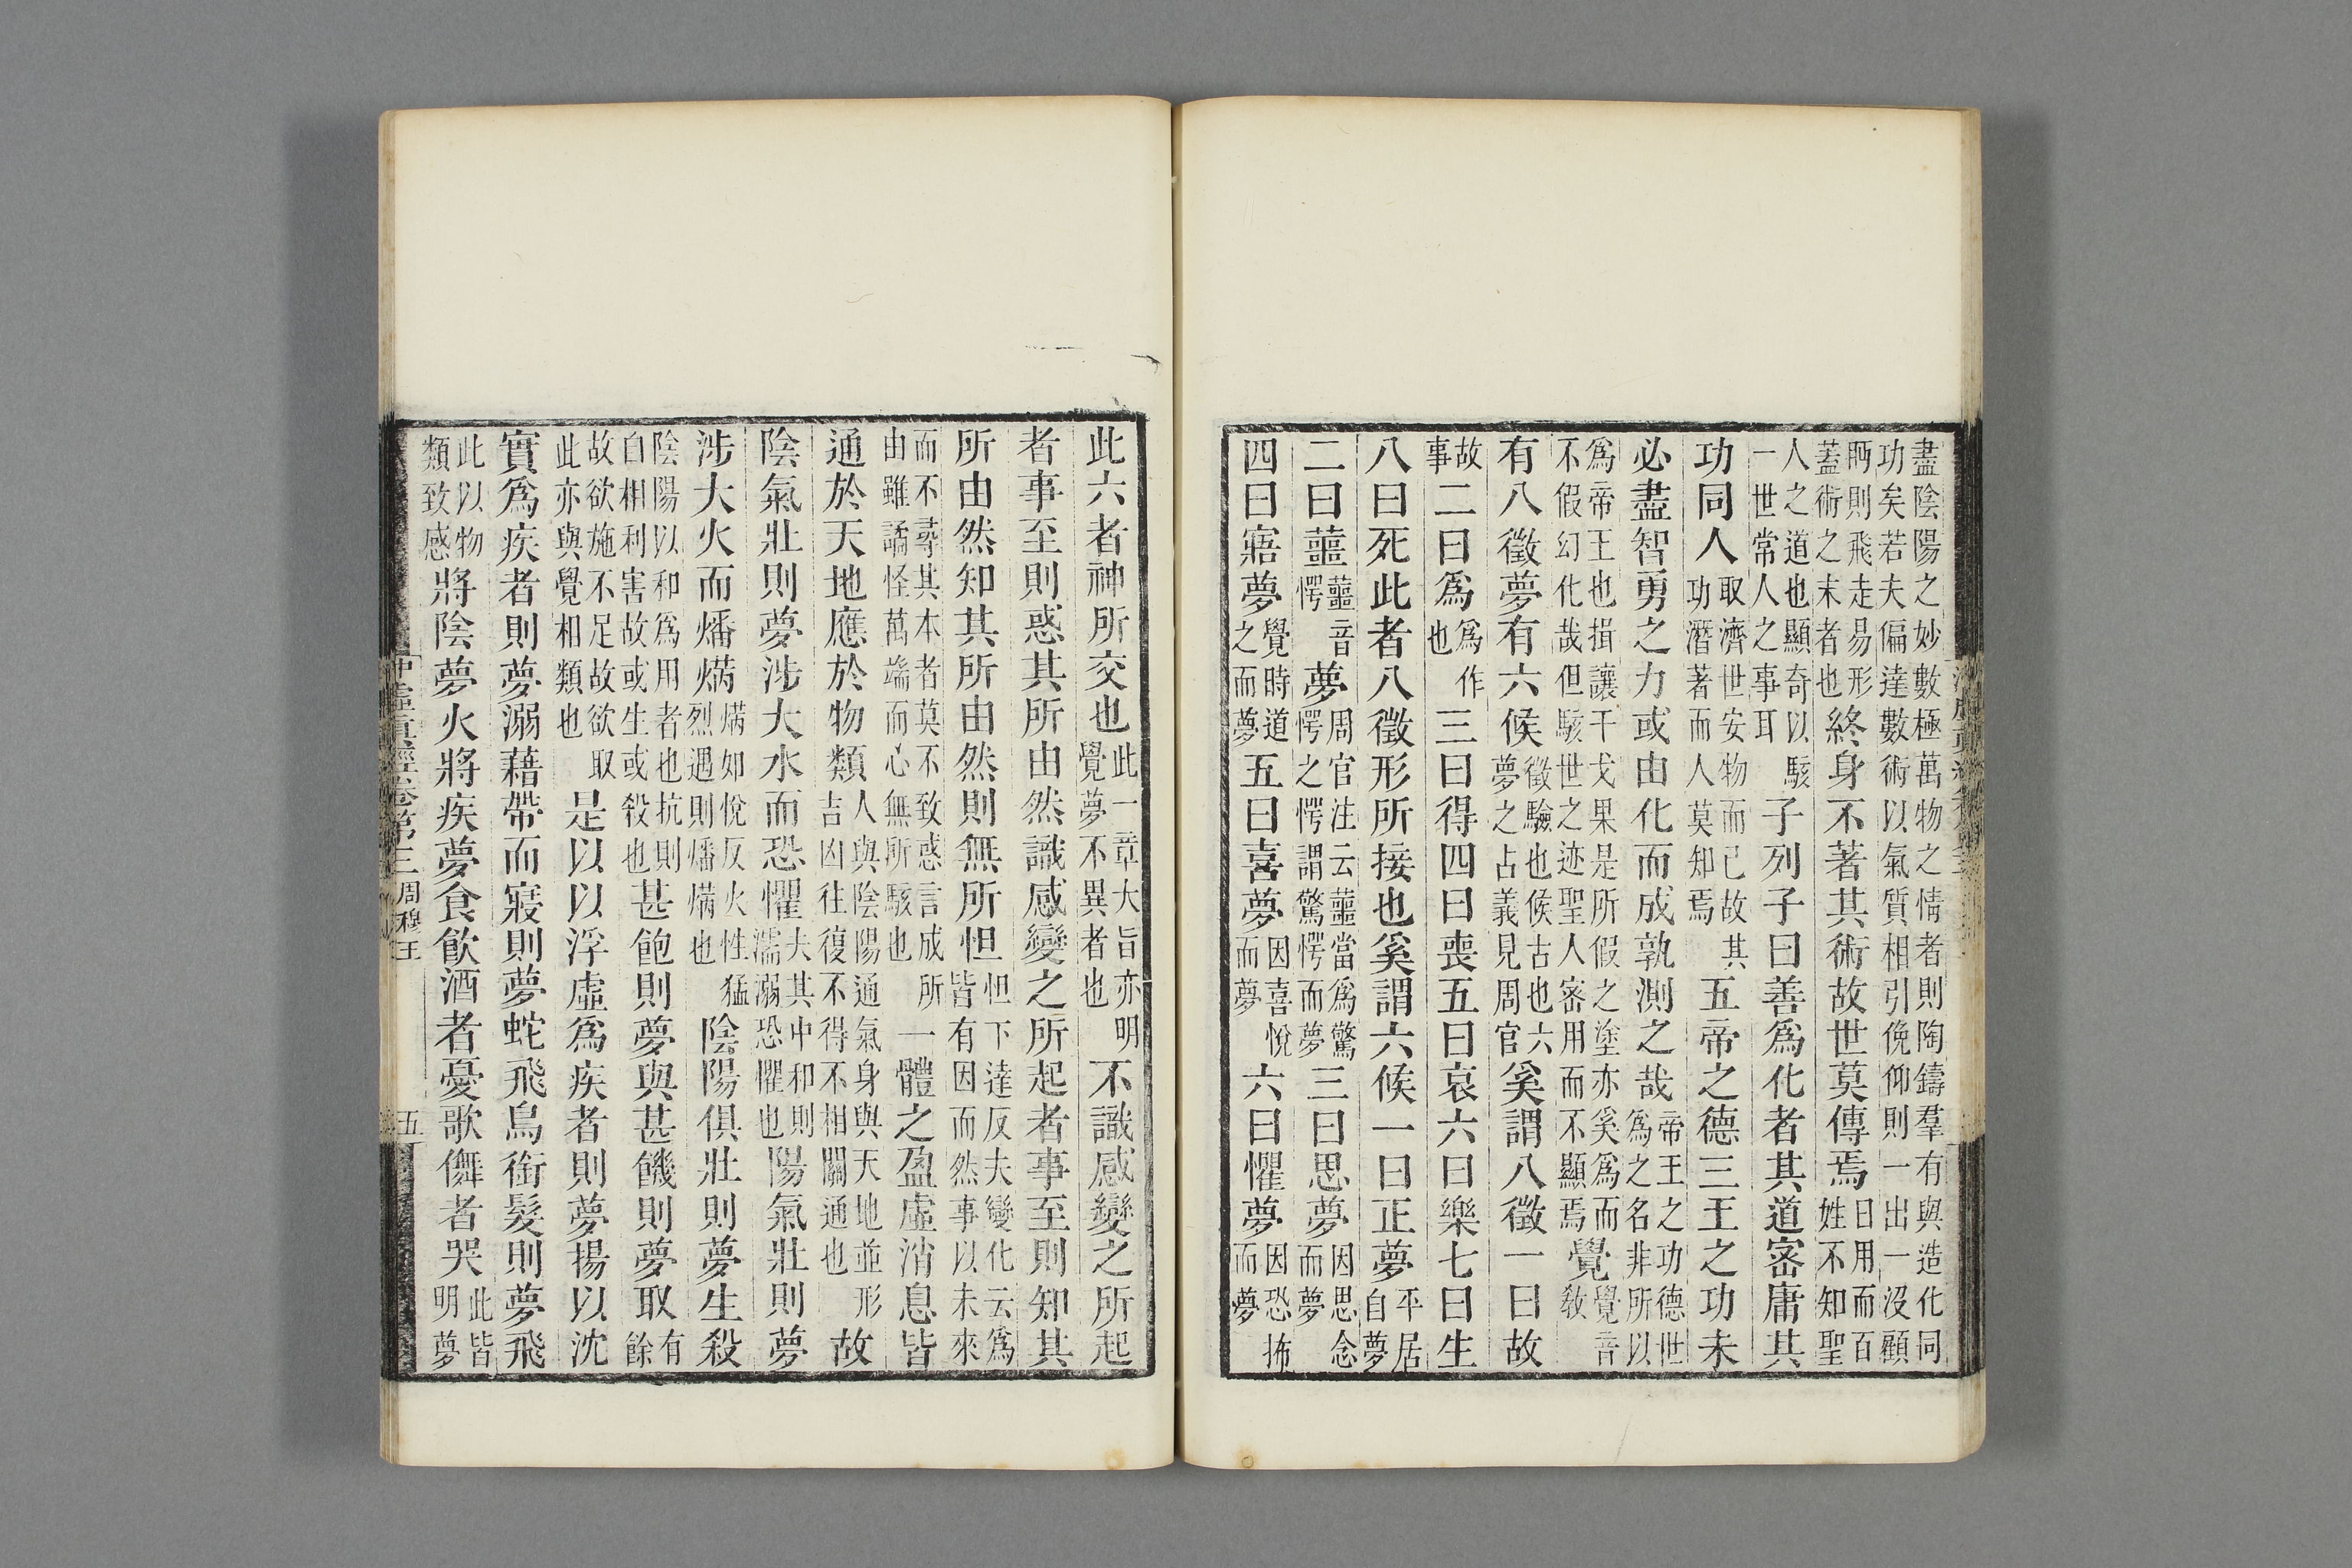 盡陰陽之妙數極萬物之情者則陶鑄羣有與造化同
功矣若夫偏達數術以氣質相引俛仰則一出一沒顧
眄則飛走易形蓋術之末者也終身不著其術故世莫傳焉日用而百姓不知聖
人之道也顯奇以駭一世常人之事耳子列子曰善爲化者其道密庸其
功同人取濟世安物而已故其功潛著而人莫知焉五帝之德三王之功未
必盡智勇之力或由化而成孰測之哉帝王之功德世爲之名非所以
爲帝王也揖讓干戈果是所假之塗亦奚爲而不假幻化哉但駭世之迹聖人密用而不顯焉覺覺音敎
有八徵夢有六候徵驗也候古也六夢之占義見周官奚謂八徵一曰故
故事二曰爲爲作也三曰得四曰喪五曰哀六曰樂七曰生
八曰死此者八徵形所接也奚謂六候一曰正夢平居自夢
二曰蘁蘁音愕夢周官注云蘁當爲驚愕之愕謂驚愕而夢三曰思夢因思念而夢
四曰寤夢覺時道之而夢五曰喜夢因喜悅而夢六曰懼夢因恐怖而夢
此六者神所交也此一章大旨亦明覺夢不異者也不識感變之所起
者事至則惑其所由然識感變之所起者事至則知其
所由然知其所由然則無所怛怛下達反夫變化云爲皆有因而然事以未來
而不尋其本者莫不致惑言成所由雖譎怪萬端而心無所駭也一體之盈虛消息皆
通於天地應於物類人與陰陽通氣身與天地並形吉凶往復不得不相關通也故
陰氣壯則夢涉大水而恐懼夫其中和則濡溺恐懼也陽氣壯則夢
涉大火而燔焫焫如悅反火性猛烈遇則燔焫也陰陽俱壯則夢生殺
陰陽以和爲用者也抗則自相利害故或生或殺也甚飽則夢與甚饑則夢取有餘
故欲施不足故欲取此亦與覺相類也是以以浮虛爲疾者則夢揚以沈
實爲疾者則夢溺藉帶而寢則夢蛇飛鳥銜髮則夢飛
此以物類致感將陰夢火將疾夢食飲酒者憂歌儛者哭此皆明夢
冲虛眞經卷第三 周穆王 五